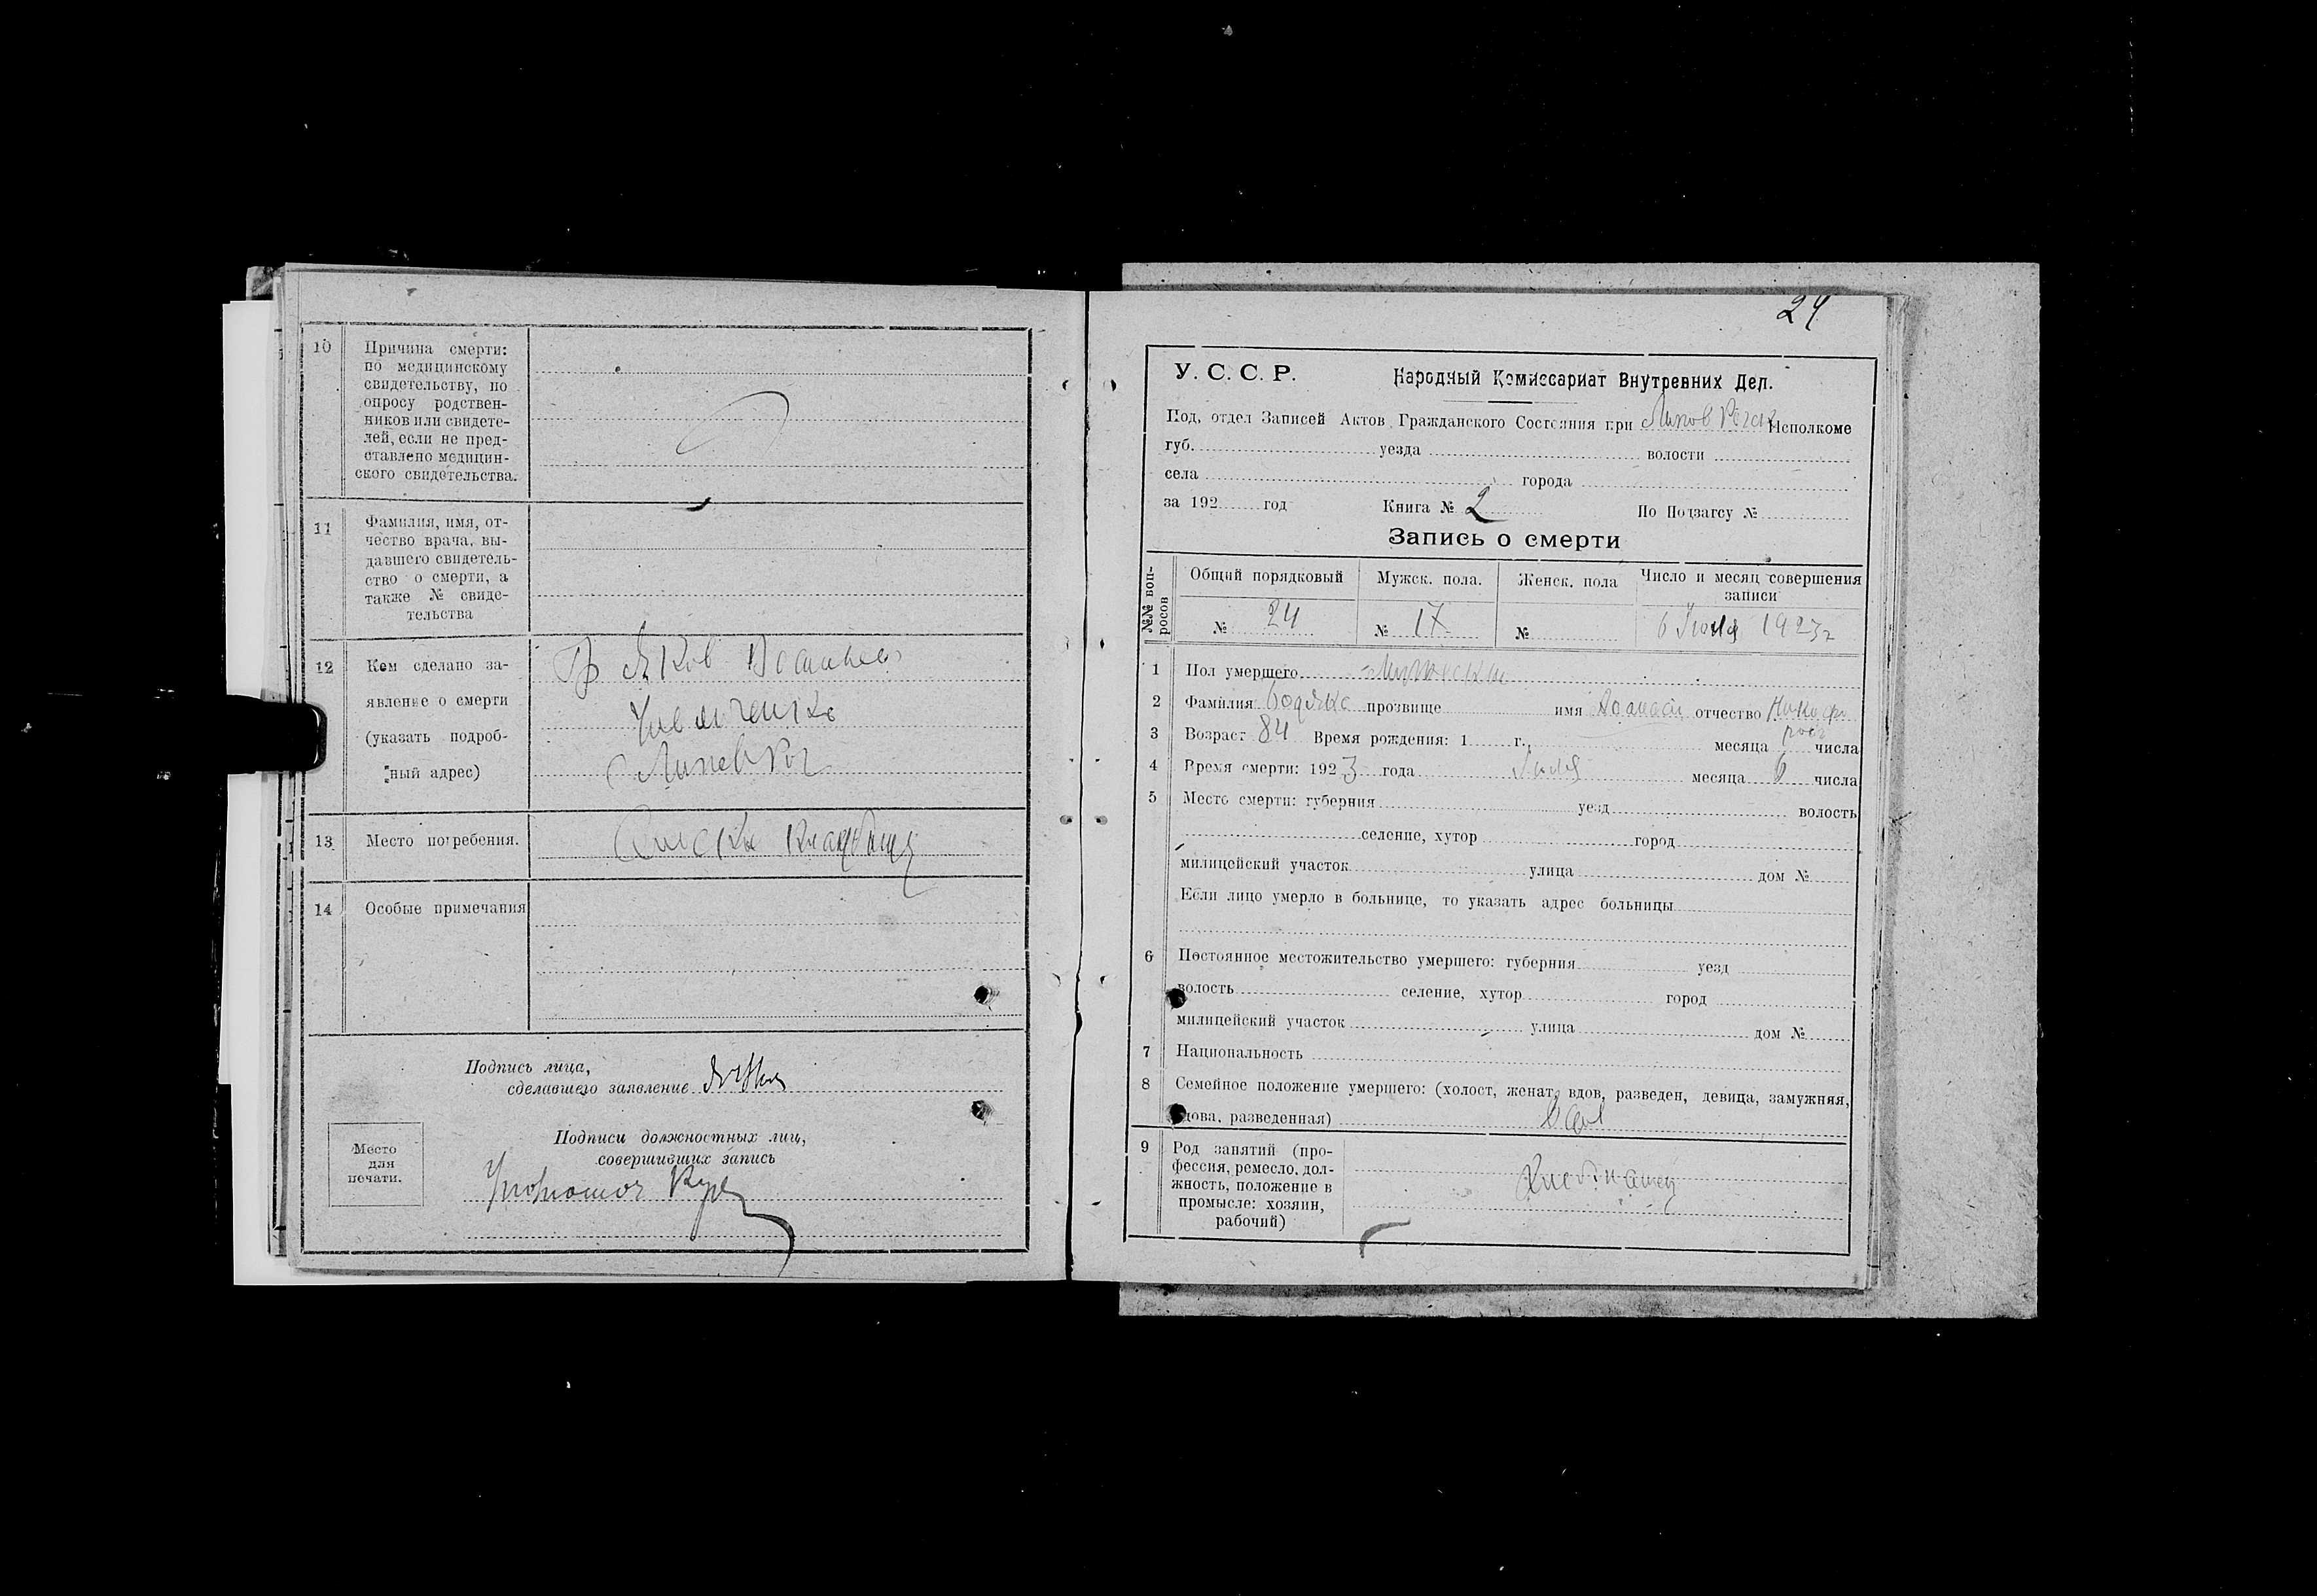 10
Причина смерти:
по медицинскому
свидетельству, по
опросу родствен-
ников или свидете-
лей, если не пред-
ставлено медицин-
ского свидетельства.
11
Фамилия, имя, от-
чество врача, вы-
давшего свидетель-
ство о смерти, а
также № свиде-
тельства
12
Кем сделано за-
явление о смерти
(указать подроб-
ный адрес)
Гр Яков
13
Место погребения.
14
Особые примечания
Подпись лица,
сделавшего заявление
Подписи должностных лиц,
совершивших запись
Место
для
печати.
24
У. С. С. Р. Народный Комиссариат Внутревних Дел.
Под, отдел Записей Актов Гражданского Состояния при Исполкоме
губ. уезда волости
села города
за 192 год Книга № 2 По Подзагсу №
Запись о смерти
№№ воп-
росов
Общий порядковый Мужск. пола. Женск. пола Число и месяц совершения
записи
№ 24 № 17 № 6 1923 г
1 Пол умершего
2 Фамилия Бодяка прозвище имя отчество Никифо
ров
3 Возраст 84 Время рождения: 1 г. месяца числа
4 Время смерти: 1923 года месяца 6 числа
5 Место смерти: губерния уезд волость
селение, хутор город
милицейский участок улица дом №
Если лицо умерло в больнице, то указать адрес больницы
6 Постоянное местожительство умершего: губерния уезд
волость селение, хутор город
милицейский участок улица дом №
7 Национальность
8 Семейное положение умершего: (холост, женат, вдов, разведен, девица, замужняя,
вдова, разведенная) вдов
9 Род занятий (про-
фессия, ремесло, дол-
жность, положение в
промысле: хозяин,
рабочий)